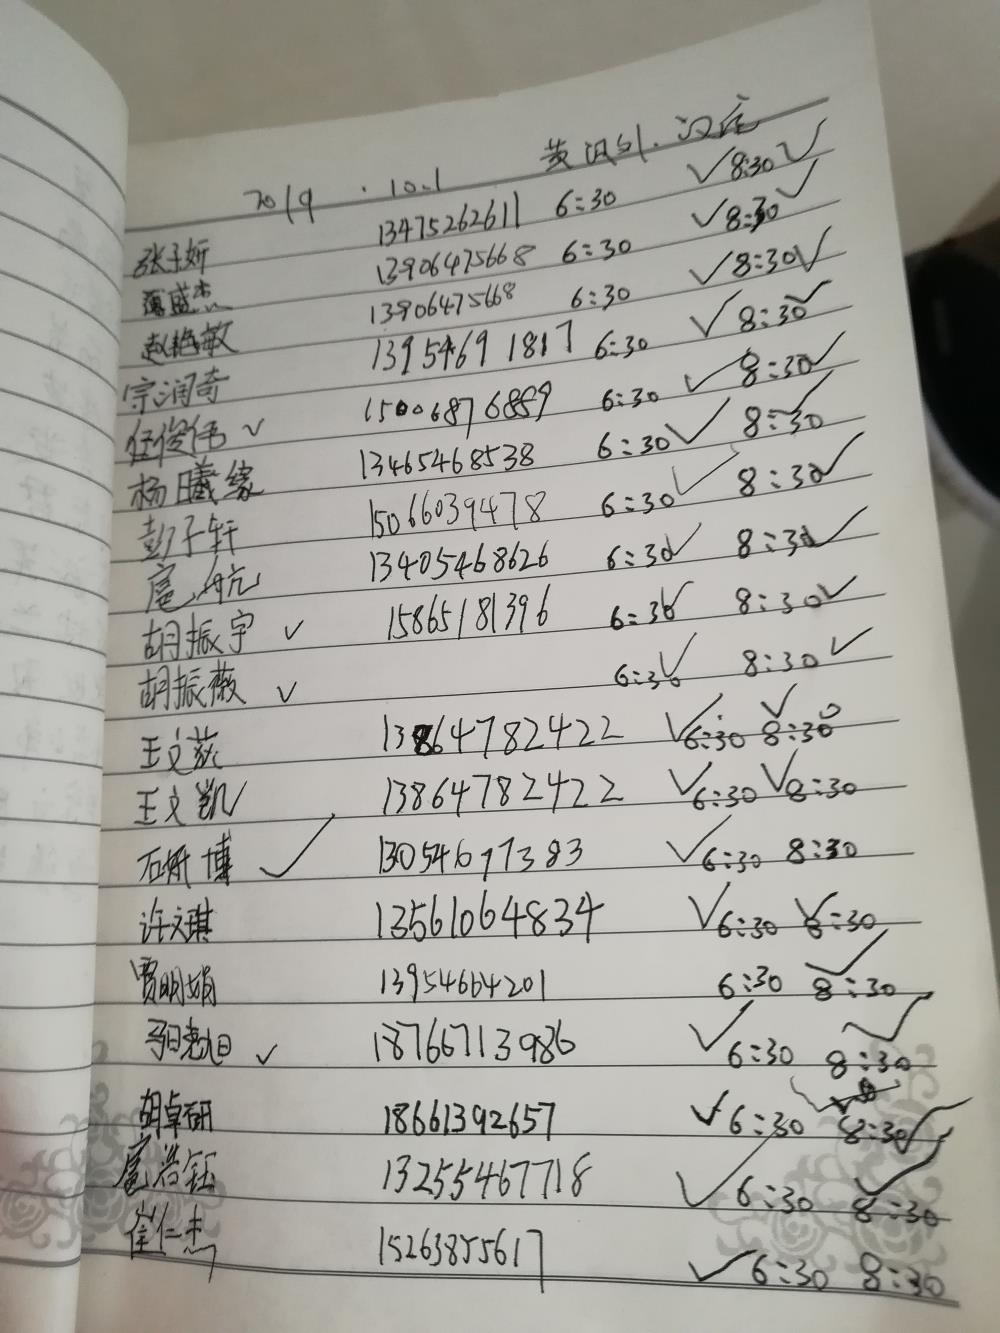 2019.10.1 黄河外.汉庄
张子妍 13475262611 6:30 ✓8:30✓
薄盛杰 13906475668 6:30 ✓8:30✓
赵艳敏 13906475668 6:30 ✓8:30✓
宗润奇 13954691817 6:30 ✓8:30✓
任俊伟✓ 15006876889 6:30 ✓8:30✓
杨曦缘 13465468538 6:30✓ 8:30✓
彭子轩 15066039478 6:30✓ 8:30✓
扈航 13405468626 6:30✓ 8:30✓
胡振宇✓ 15865181396 6:30✓ 8:30✓
胡振薇✓ 6:30✓ 8:30✓
王文荻 13864782422 ✓6:30 ✓8:30
王文凯 13864782422 ✓6:30 ✓8:30
石妍博✓ 13054677383 ✓6:30 8:30
许文琪 13561064834 ✓6:30 ✓8:30
贾明娟 13954664201 6:30 8:30✓
✓ 18766713986 ✓6:30 8:30✓
胡卓研 18661392657 ✓6:30 8:30✓
扈浩钰 13255467718 ✓6:30 8:30✓
崔仁杰 15263855617 ✓6:30 8:30